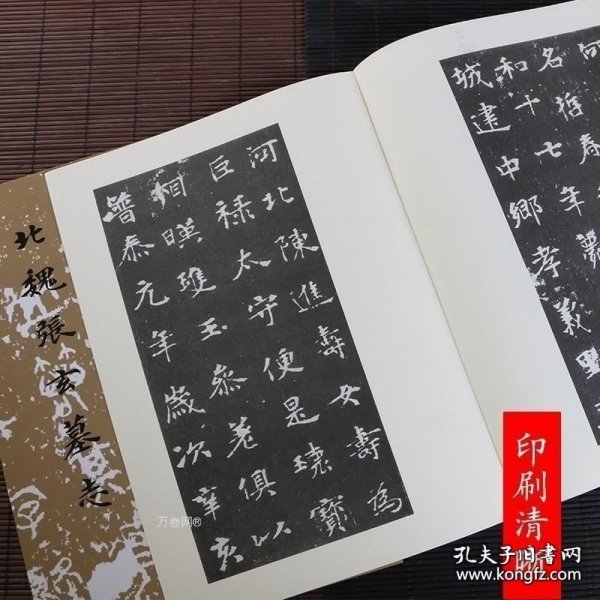 名哲春
和十七年薨
城建中鄉孝義里
河北陳進壽女壽為
巨祿太守便是瓌寶
相暎瓊玉參差俱以
普泰元年歲次辛亥
北魏張玄墓志
印刷清晰
万卷阁®
孔夫子旧书网
www.kongfz.com